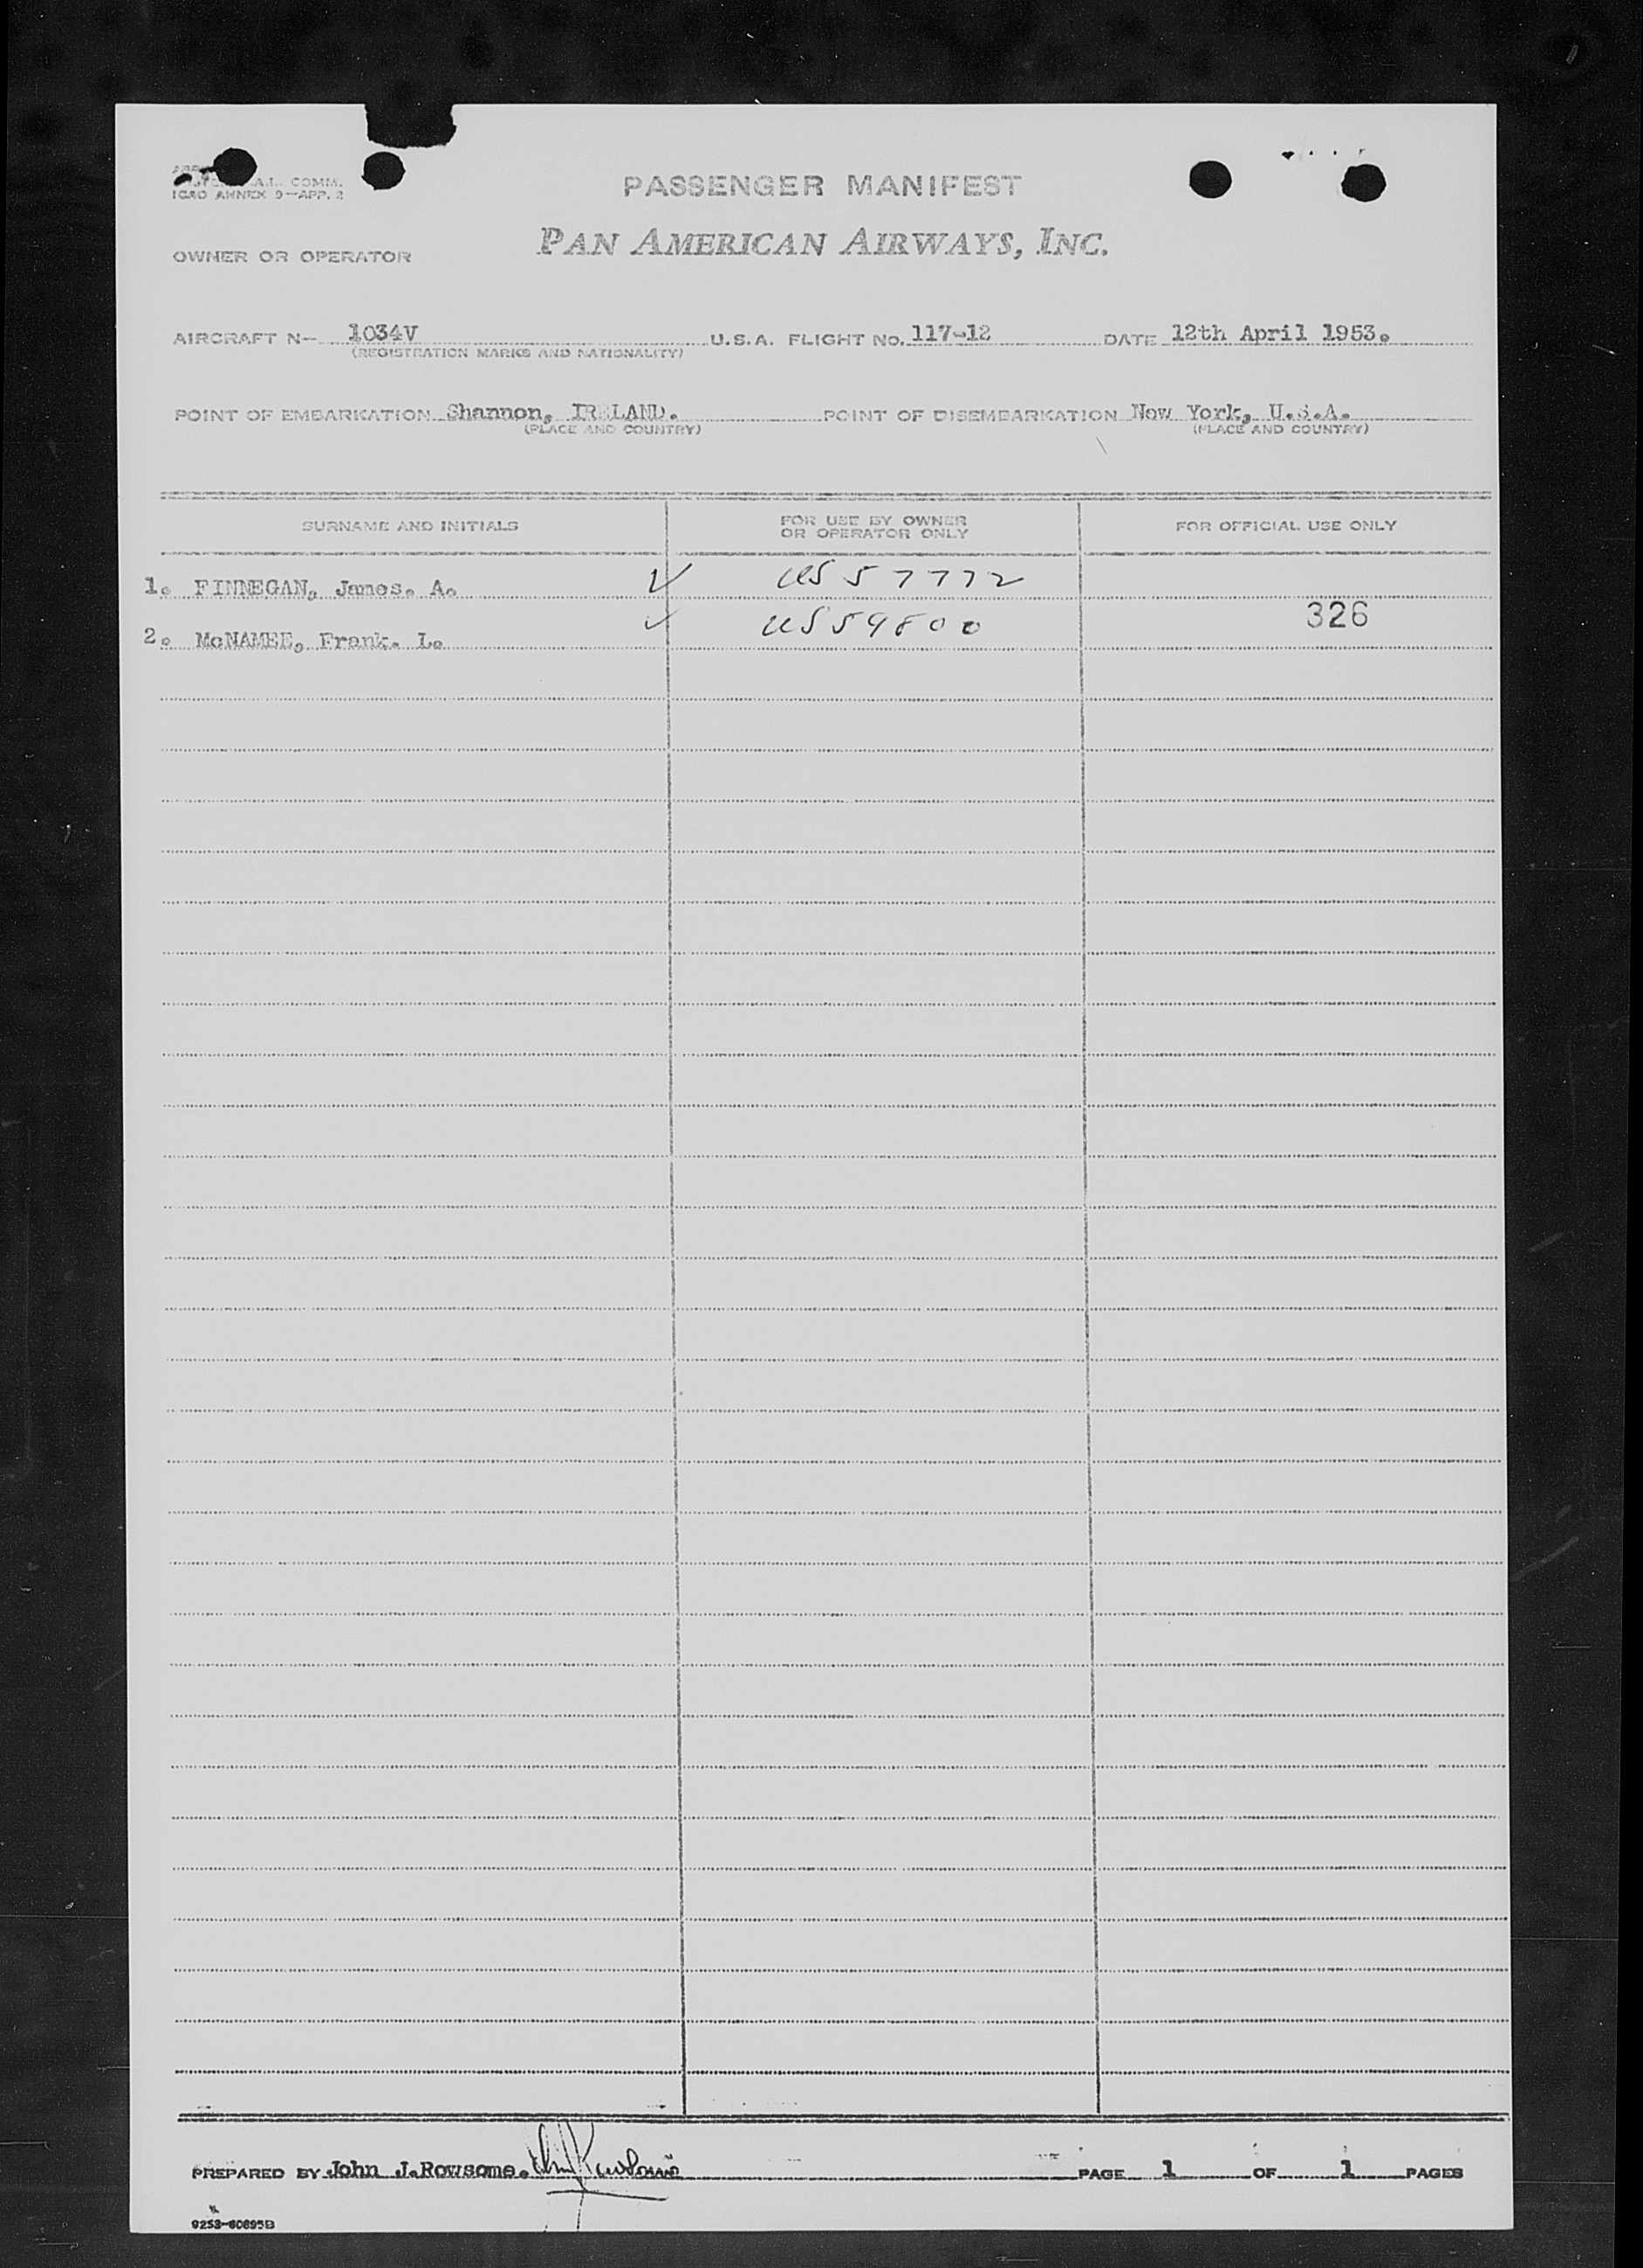 A.I. COMM.
ICAO ANNEX 9—APP. 2
PASSENGER MANIFEST
OWNER OR OPERATOR PAN AMERICAN AIRWAYS, INC.
AIRCRAFT N— 1034V U.S.A. FLIGHT NO. 117-12 DATE 12th April 1953.
(REGISTRATION MARKS AND NATIONALITY)
POINT OF EMBARKATION Shannon, IRELAND. POINT OF DISEMBARKATION New York, U.S.A.
(PLACE AND COUNTRY) (PLACE AND COUNTRY)
SURNAME AND INITIALS FOR USE BY OWNER OR OPERATOR ONLY FOR OFFICIAL USE ONLY
1. FINNEGAN, James. A. US 57772
2. McNAMEE, Frank. L. US59800 326
PREPARED BY John J.Rowsome. John J Rowsome PAGE 1 OF 1 PAGES
9253-60895B